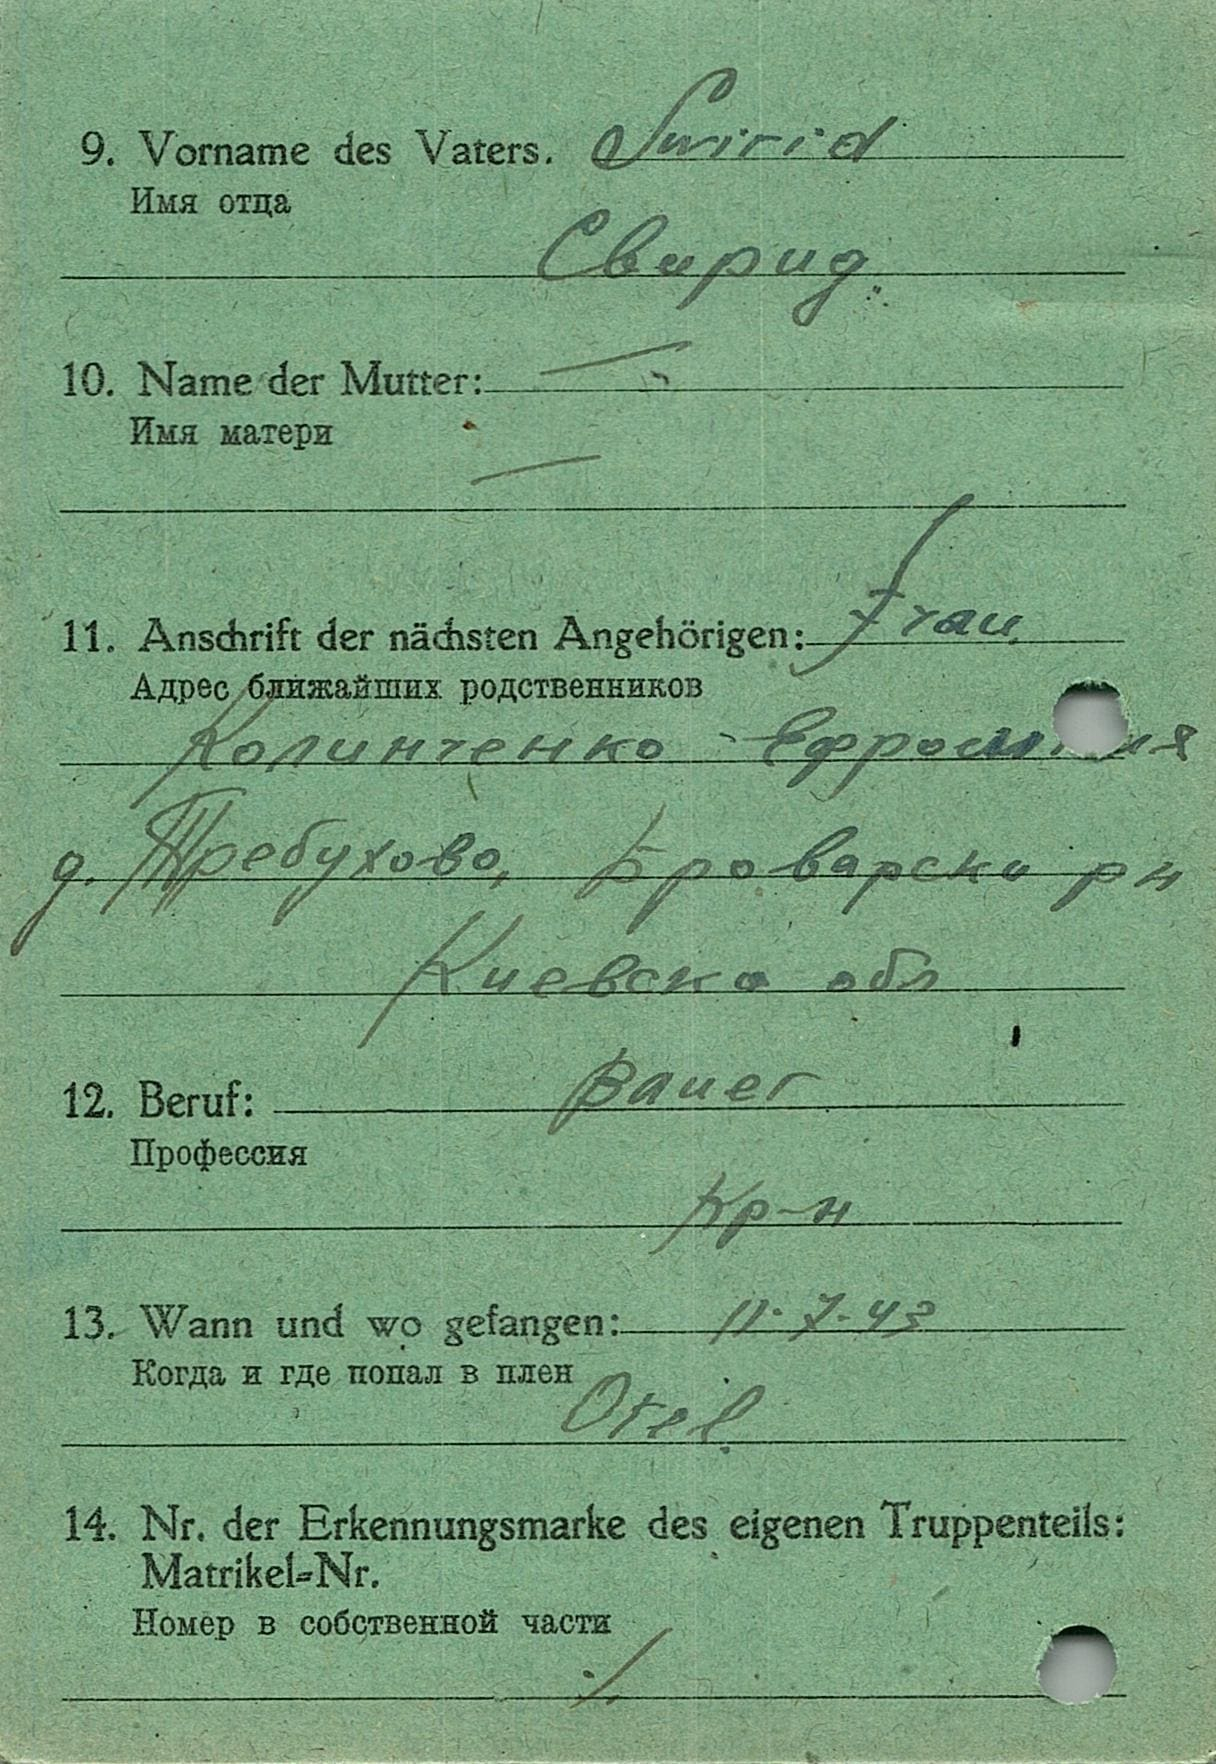 9. Vorname des Vaters. Swirid
Имя отца
Свирид
10. Name der Mutter: —
Имя матери
—
11. Anschrift der nächsten Angehörigen: Frau
Адрес ближайших родственников
Колинченко
д. Требухово, Броварски рн
Киевско обл
12. Beruf: Bauer
Профессия
Кр-н
13. Wann und wo gefangen: 11.7.43
Когда и где попал в плен
Orel
14. Nr. der Erkennungsmarke des eigenen Truppenteils:
Matrikel-Nr.
Номер в собственной части